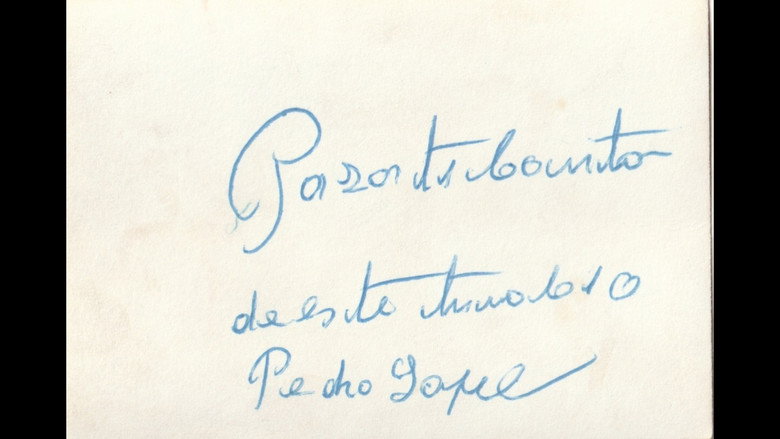 Para ti bonita
de este
Pedro Lopez